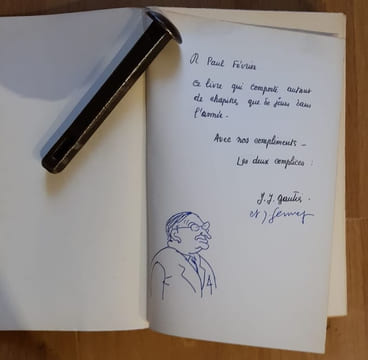 A Paul Février
ce livre qui comporte autant
de chapitres, que de jours dans
l'année.
Avec nos compliments _
Les deux complices :
J.J. Gautier
et J Sennep